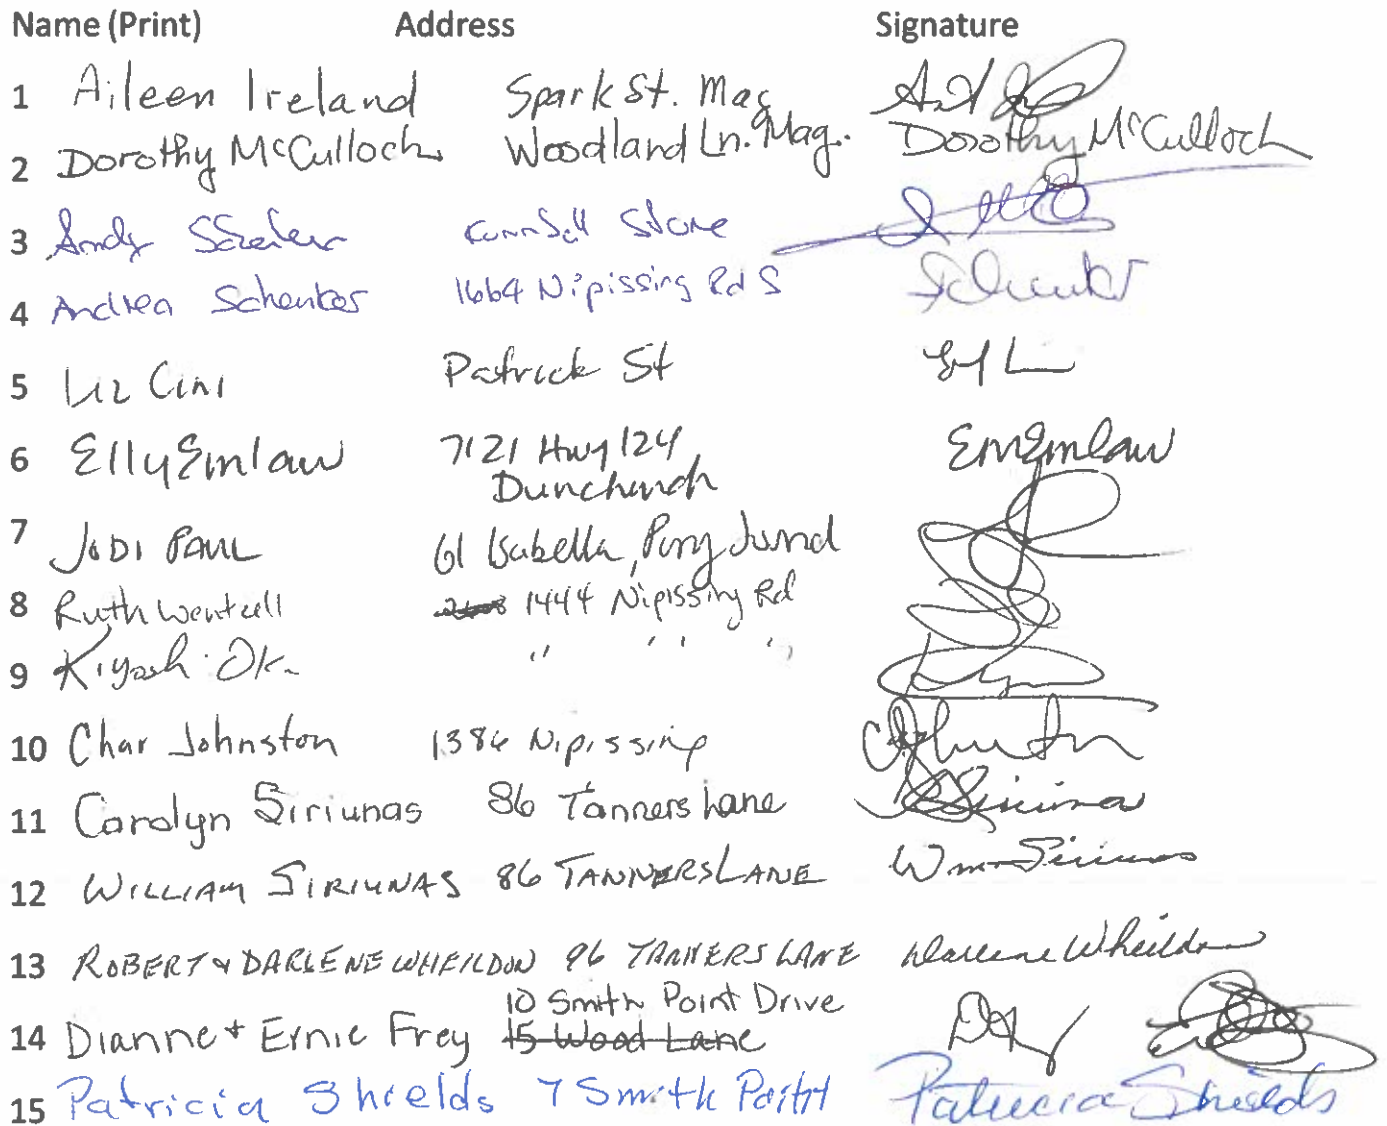 Name (Print) Address Signature
1 Aileen Ireland Spark St. Mag
2 Dorothy McCulloch Woodland Ln. Mag. Dorothy McCulloch
3 Andy Store
4 Andrea Schenker 1664 Nipissing Rd S Schenker
5 Liz Cini Patrick St
6 Elly Emlaw 7121 Hwy 124 EmEmlaw
Dunchurch
7 JODI PAUL 61 Isabella, Parry Sound
8 Ruth Wentzell 1444 Nipissing Rd
9 Kiyoshi Ok " " "
10 Char Johnston 1386 Nipissing CJohnston
11 Carolyn Siriunas 86 Tanners Lane
12 WILLIAM SIRIUNAS 86 TANNERS LANE Wm Siriunas
13 ROBERT & DARLENE WHEILDON 96 TANNERS LANE Darlene Wheildon
10 Smith Point Drive
14 Dianne + Ernie Frey 15 Wood Lane
15 Patricia Shields 7 Smith Point Patricia Shields